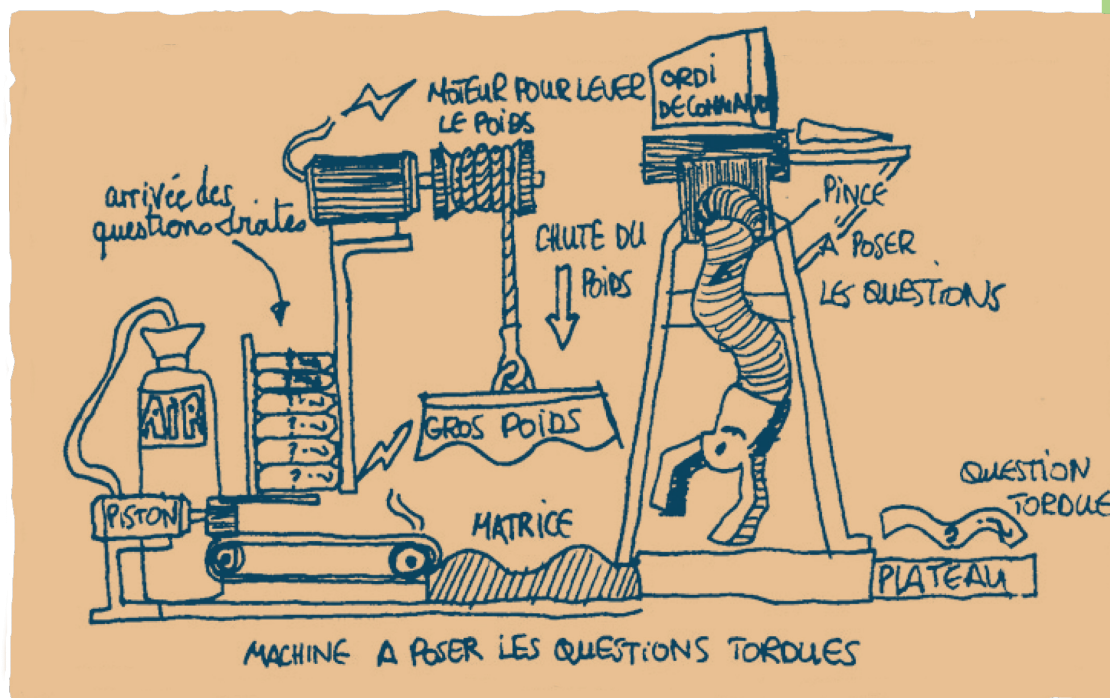 MOTEUR POUR LEVER
LE POIDS
ORDI
DE COMMANDE
arrivée des
questions droites
CHUTE DU
POIDS
PINCE
A POSER
LES QUESTIONS
AIR
GROS POIDS
PISTON
MATRICE
QUESTION
TORDUE
PLATEAU
MACHINE A POSER LES QUESTIONS TORDUES